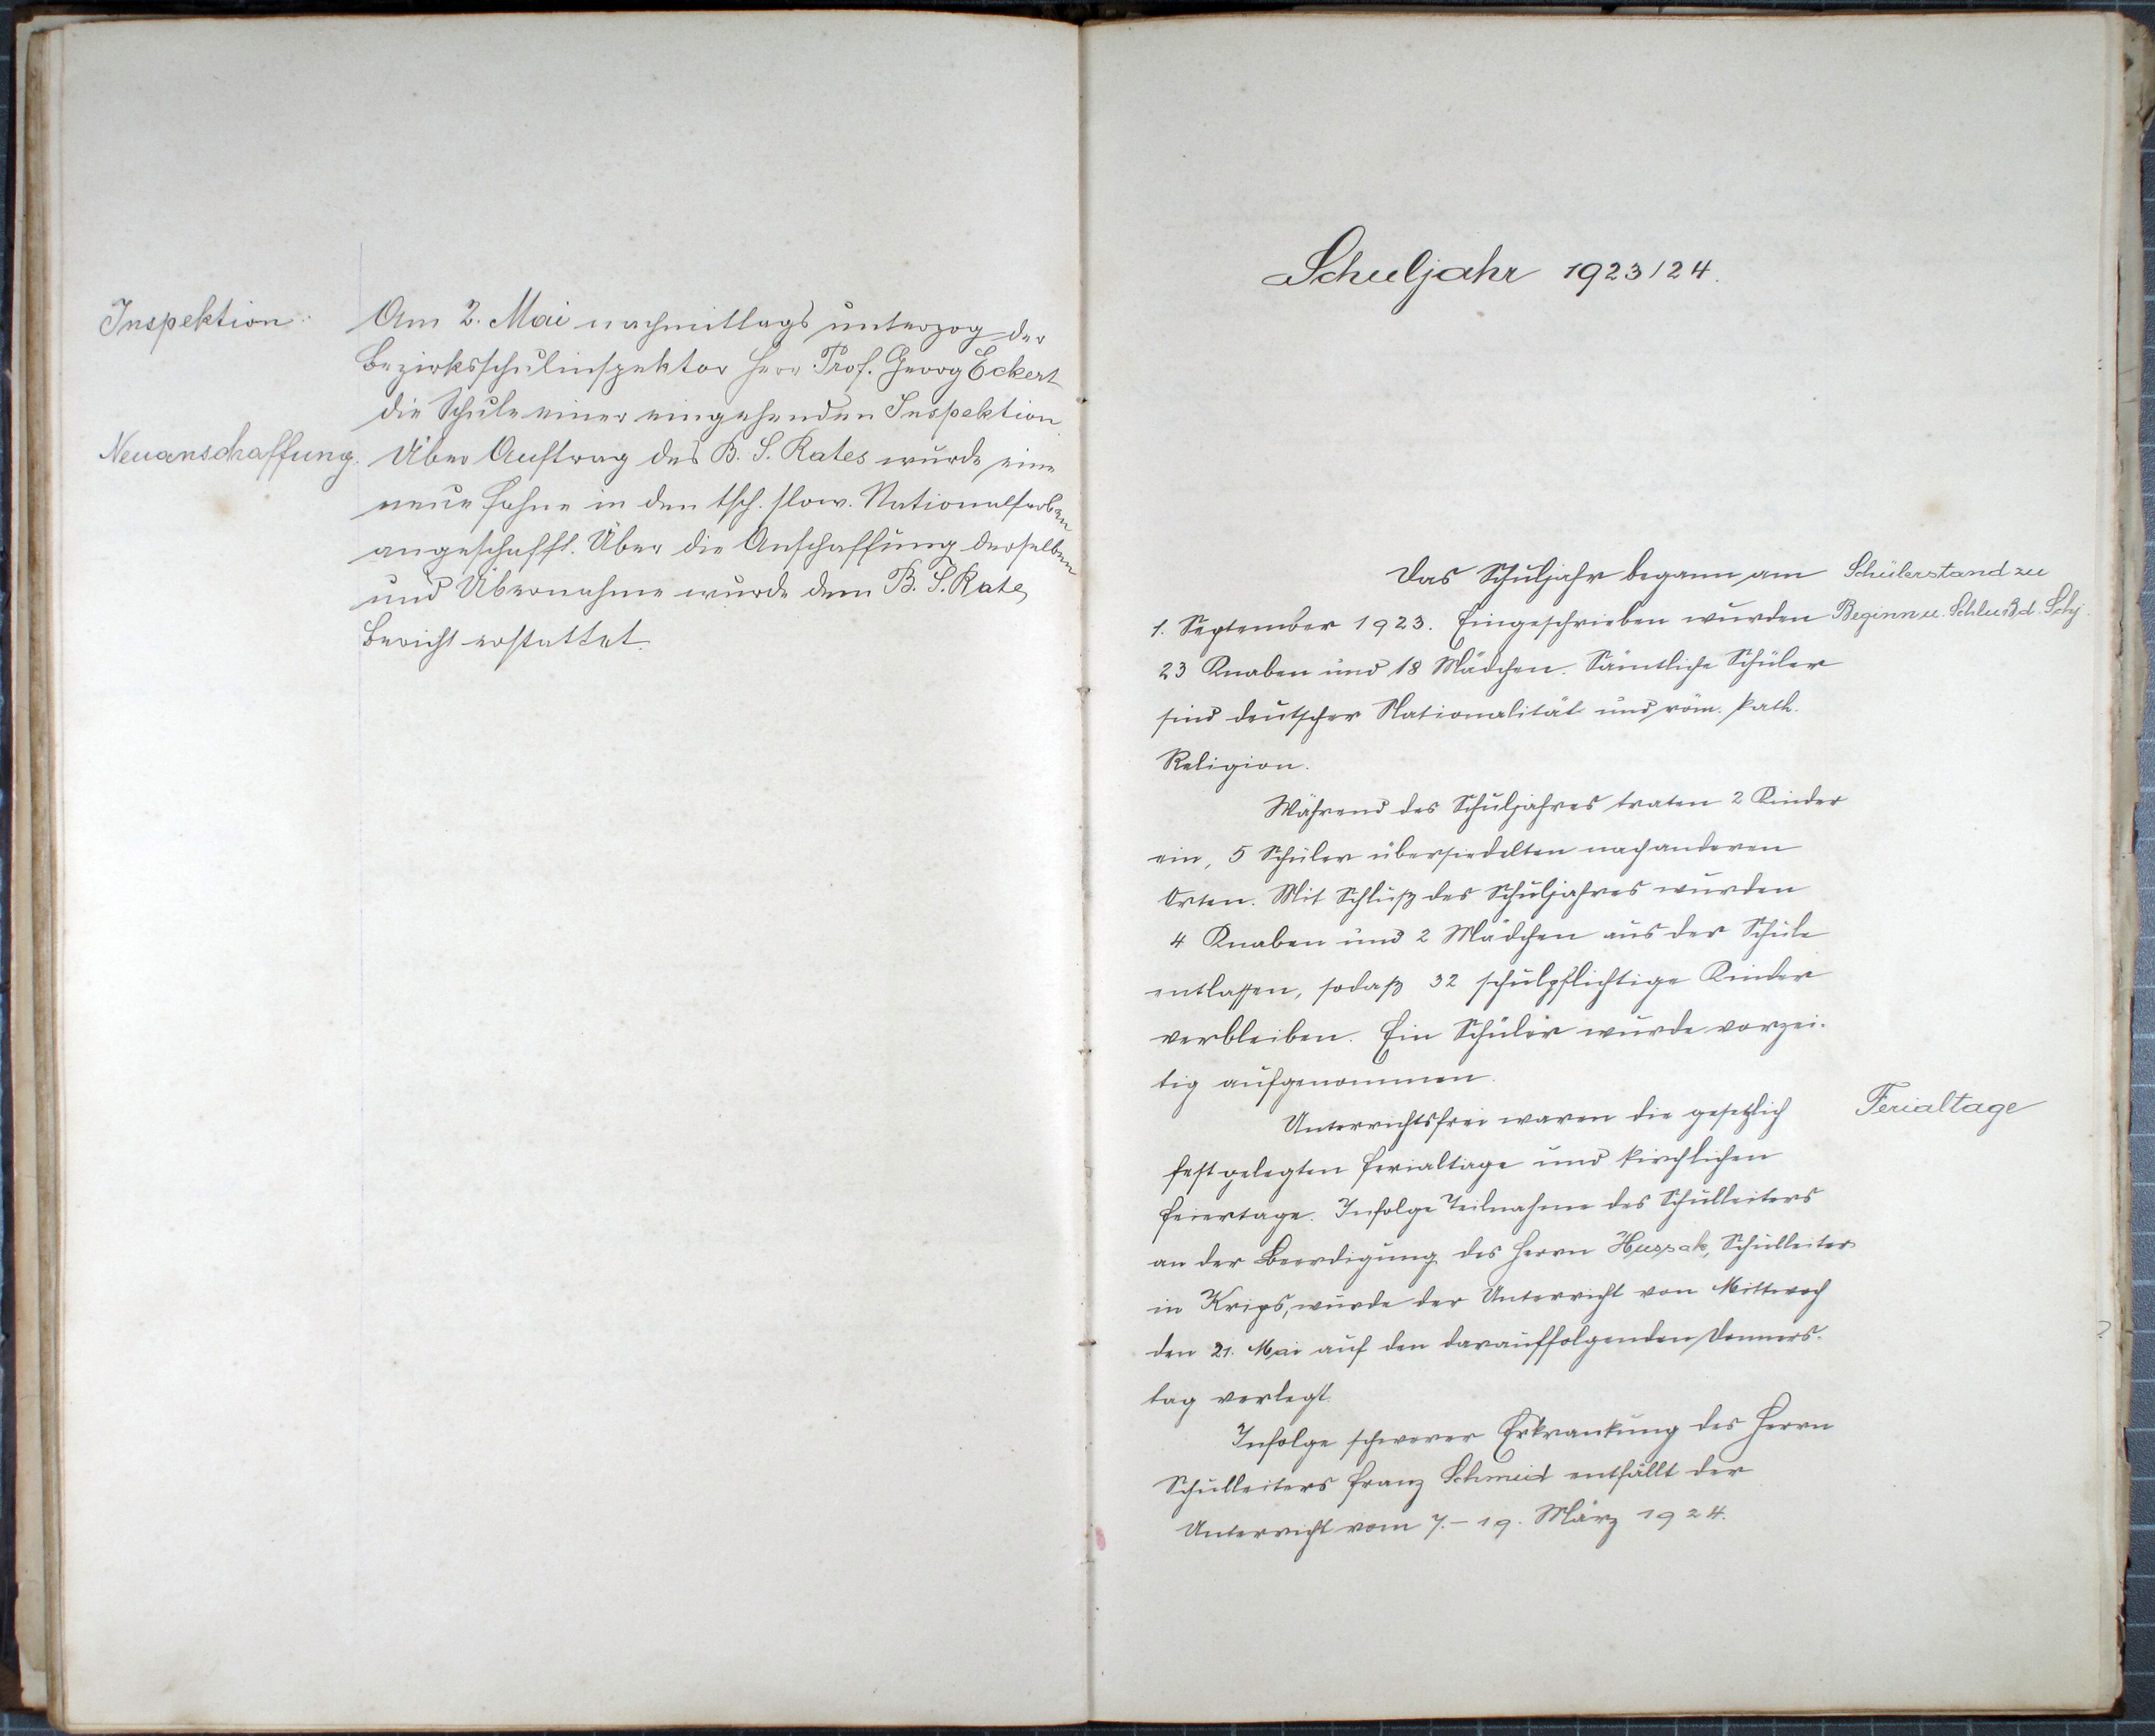 Inspektion:
Am 2. Mai nachmittags unterzog der
Bezirksschulinspektor Herr Prof. Georg Eckert
die Schule einer eingehenden Inspektion.
Neuanschaffung.
Über Auftrag des B. S. Rates wurde eine
neue Fahne in den tsch. slow. Nationalfarben
angeschafft. Über die Anschaffung derselben
und Übernahme wurde dem B. S. Rate
Bericht erstattet.
Schuljahr 1923/24.
Das Schuljahr begann am
1. September 1923. Eingeschrieben wurden
23 Knaben und 18 Mädchen. Sämtliche Schüler
sind deutscher Nationalität und röm. kath.
Religion.
Schülerstand zu
Beginn u. Schluß d. Schj.
Während des Schuljahres traten 2 Kinder
ein, 5 Schüler übersiedelten nach anderen
Orten. Mit Schluß des Schuljahres wurden
4 Knaben und 2 Mädchen aus der Schule
entlassen, sodaß 32 schulpflichtige Kinder
verbleiben. Ein Schüler wurde vorzei-
tig aufgenommen.
Unterrichtsfrei waren die gesetzlich
Ferialtage
festgelegten Ferialtage und kirchlichen
Feiertage. Infolge Teilnahme des Schulleiters
an der Beerdigung des Herrn Hussak, Schulleiter
in Krips, wurde der Unterricht von Mittwoch
den 21. Mai auf den darauffolgenden Donners-
tag verlegt.
Infolge schwerer Erkrankung des Herrn
Schulleiters Franz Schmid entfällt der
Unterricht vom 7.–19. März 1924.